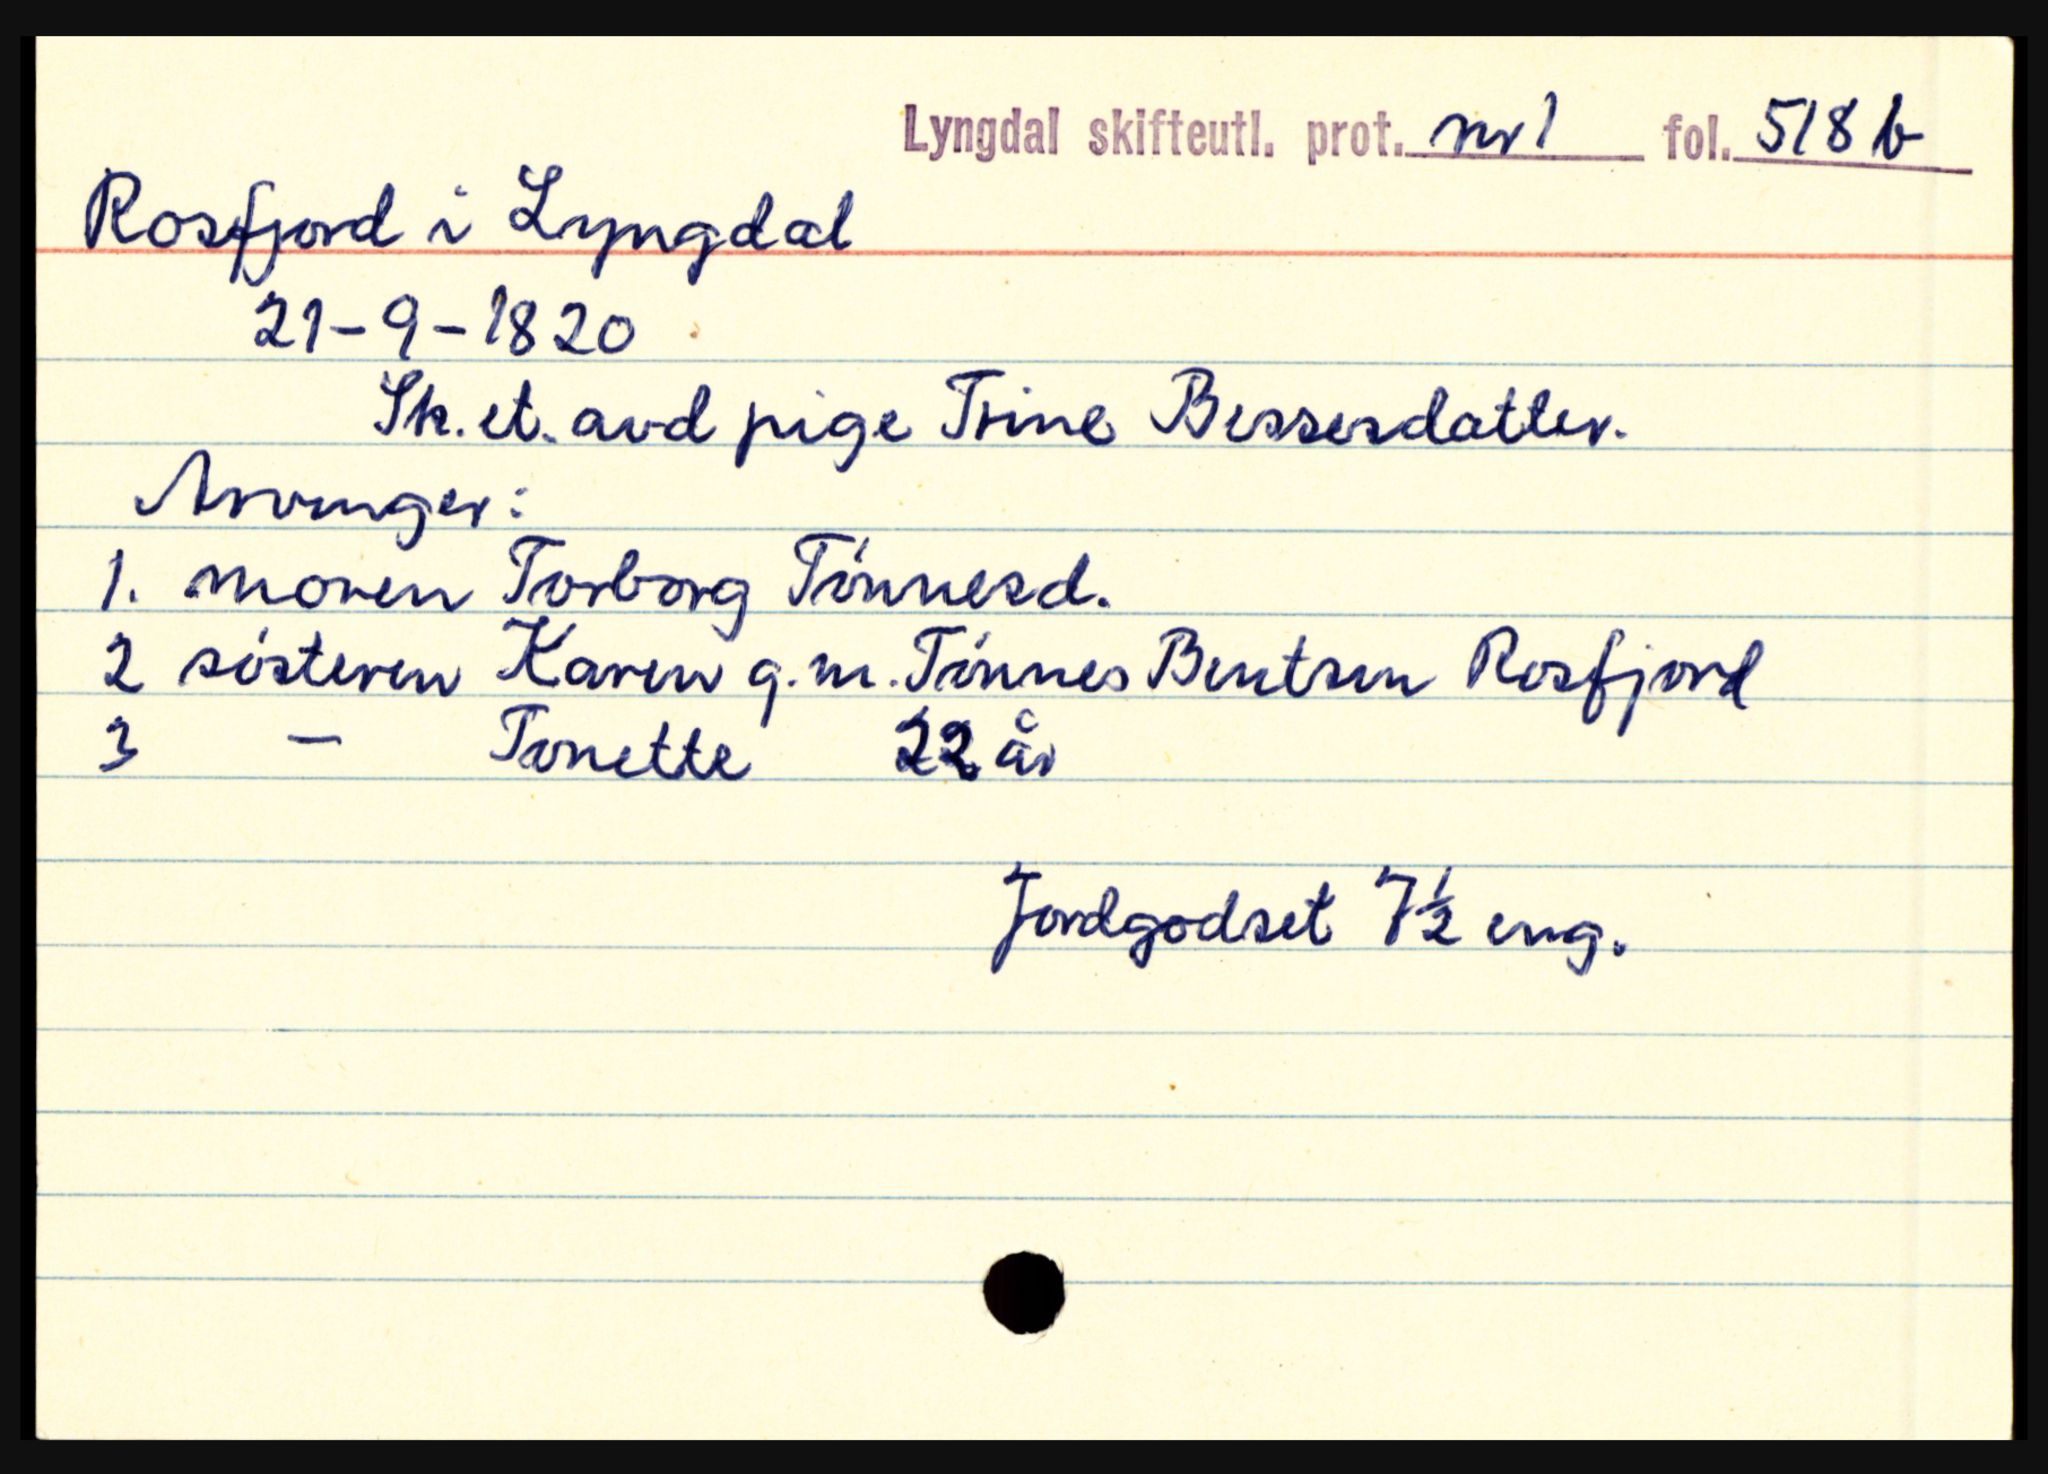 Lyngdal skifteutl. prot. nr 1 fol. 518 b
Rosfjord i Lyngdal
21-9-1820
Sk. et. avd pige Trine Bessesdatter.
Arvinger:
1. moren Torborg Tönnesd.
2 søsteren Karen g.m. Tönnes Bentsen Rosfjord
3 — Tonette 22 år
Jordgodset 7½ eng.